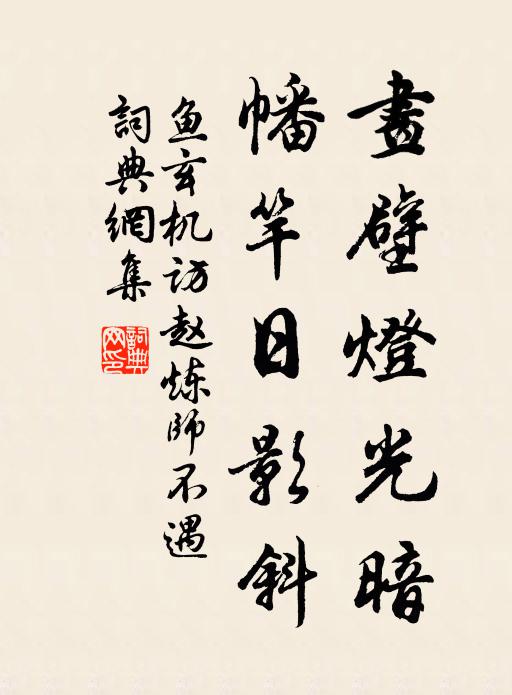 畫壁燈光暗
幡竿日影斜
鱼玄机访赵炼師不遇
詞典網集
詞典网印